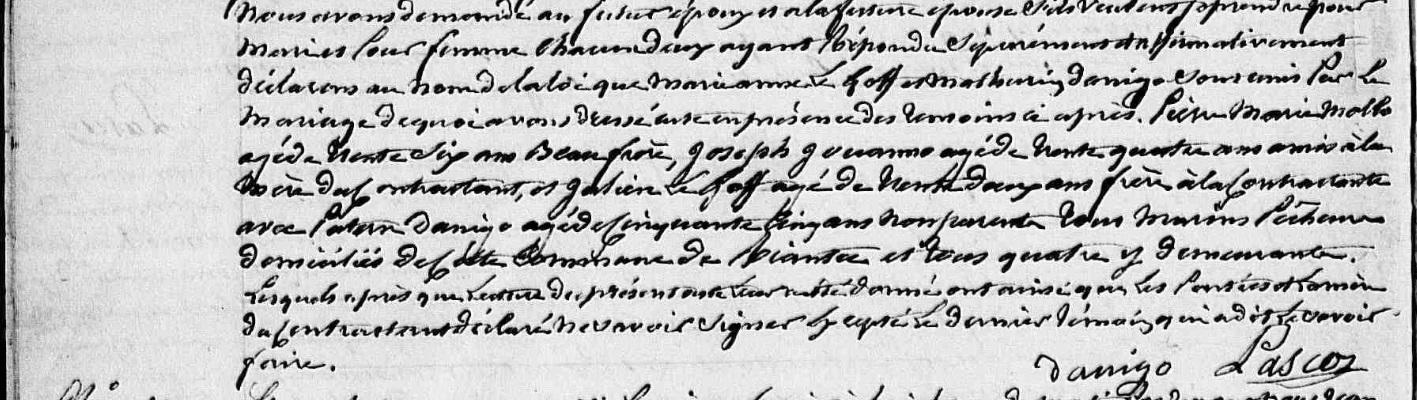 Nous avons demandé au futur époux et à la future épouse s'ils veulent se prendre pour
Mari et Pour femme Chacun d'eux ayant Répondu Séparément et affirmativement
déclarons au nom de la loi que Marie anne Le Goff et Mathurin danigo Sont unis Par Le
Mariage de quoi avons Dressé acte en présence des temoins ci après. Pierre Marie Mollo
agé de trente Six ans Beaufrère, Joseph agé de trente quatre ans amis à la
Mère du Contractant, et Julien Le Goff agé de trente deux ans frère à la Contractante
avec Patern Danigo agé de Cinquante Cinq ans non parents tous Marins Pêcheurs
domiciliés de Cette Commune de Riantec et tous quatre y demeurants.
Lesquels après que Lecture du présent acte Leur a été donné ont ainsi que Les Parties et la mère
du Contractant déclaré Ne Savoir Signer Excepté Le dernier témoin qui a dit Le Savoir
faire.
Danigo Lascoz